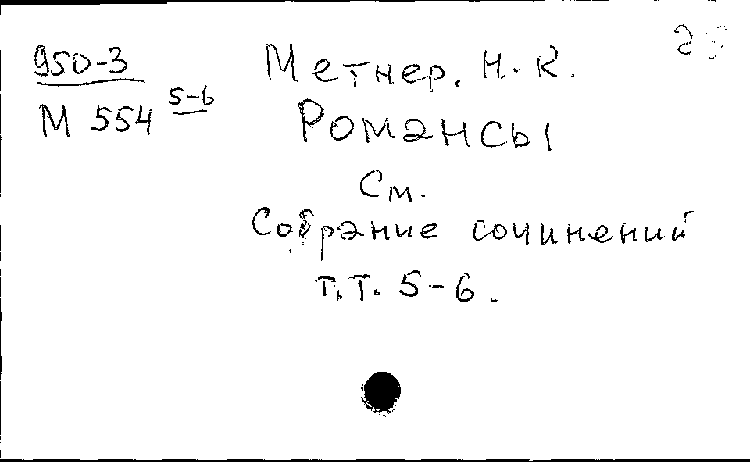 950-3
М 554 5-6
Метнер. Н. К.
Романсы
См.
Собрание сочинений
т.т. 5-6.